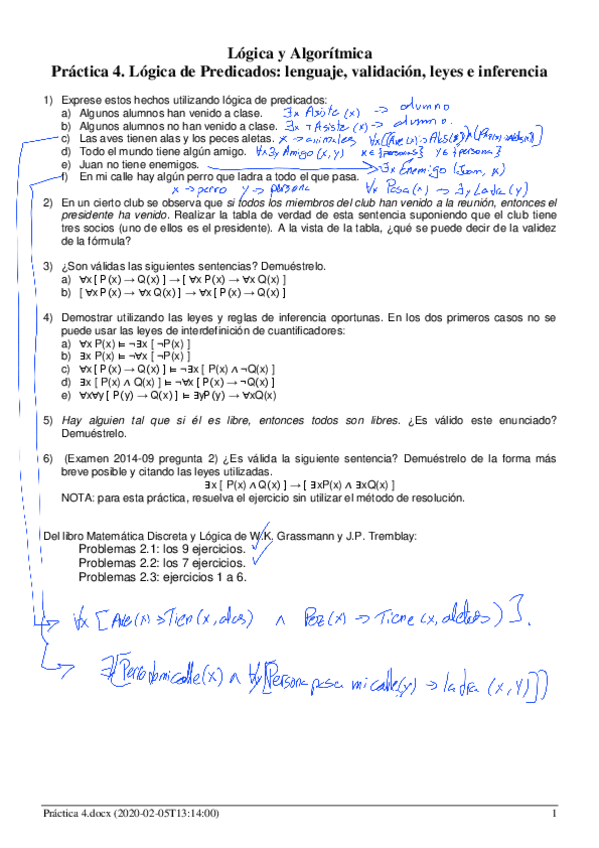 Lógica y Algorítmica
Práctica 4. Lógica de Predicados: lenguaje, validación, leyes e inferencia
1) Exprese estos hechos utilizando lógica de predicados:
a) Algunos alumnos han venido a clase. ∃x Asiste(x) → alumno
b) Algunos alumnos no han venido a clase. ∃x ¬Asiste(x) → alumno.
c) Las aves tienen alas y los peces aletas. x → animales
d) Todo el mundo tiene algún amigo. ∀x∃y Amigo(x,y) x∈{personas} y∈{personas}
e) Juan no tiene enemigos. ¬∃x Enemigo(Juan, x)
f) En mi calle hay algún perro que ladra a todo el que pasa.
x → perro y → persona ∀x Pasa(x) → ∃y Ladra(y)
2) En un cierto club se observa que si todos los miembros del club han venido a la reunión, entonces el
presidente ha venido. Realizar la tabla de verdad de esta sentencia suponiendo que el club tiene
tres socios (uno de ellos es el presidente). A la vista de la tabla, ¿qué se puede decir de la validez
de la fórmula?
3) ¿Son válidas las siguientes sentencias? Demuéstrelo.
a) ∀x [ P(x) → Q(x) ] → [ ∀x P(x) → ∀x Q(x) ]
b) [ ∀x P(x) → ∀x Q(x) ] → ∀x [ P(x) → Q(x) ]
4) Demostrar utilizando las leyes y reglas de inferencia oportunas. En los dos primeros casos no se
puede usar las leyes de interdefinición de cuantificadores:
a) ∀x P(x) ⊨ ¬∃x [ ¬P(x) ]
b) ∃x P(x) ⊨ ¬∀x [ ¬P(x) ]
c) ∀x [ P(x) → Q(x) ] ⊨ ¬∃x [ P(x) ∧ ¬Q(x) ]
d) ∃x [ P(x) ∧ Q(x) ] ⊨ ¬∀x [ P(x) → ¬Q(x) ]
e) ∀x∀y [ P(y) → Q(x) ] ⊨ ∃yP(y) → ∀xQ(x)
5) Hay alguien tal que si él es libre, entonces todos son libres. ¿Es válido este enunciado?
Demuéstrelo.
6) (Examen 2014-09 pregunta 2) ¿Es válida la siguiente sentencia? Demuéstrelo de la forma más
breve posible y citando las leyes utilizadas.
∃x [ P(x) ∧ Q(x) ] → [ ∃xP(x) ∧ ∃xQ(x) ]
NOTA: para esta práctica, resuelva el ejercicio sin utilizar el método de resolución.
Del libro Matemática Discreta y Lógica de W.K. Grassmann y J.P. Tremblay:
Problemas 2.1: los 9 ejercicios. ✓
Problemas 2.2: los 7 ejercicios. ✓
Problemas 2.3: ejercicios 1 a 6.
∀x [Ave(x) → Tien(x, alas) ∧ Pez(x) → Tiene(x, aletas)].
∃x[Perrodmicalle(x) ∧ ∀y[Persona pasa micalle(y) → ladra (x, y)]]
Práctica 4.docx (2020-02-05T13:14:00) 1